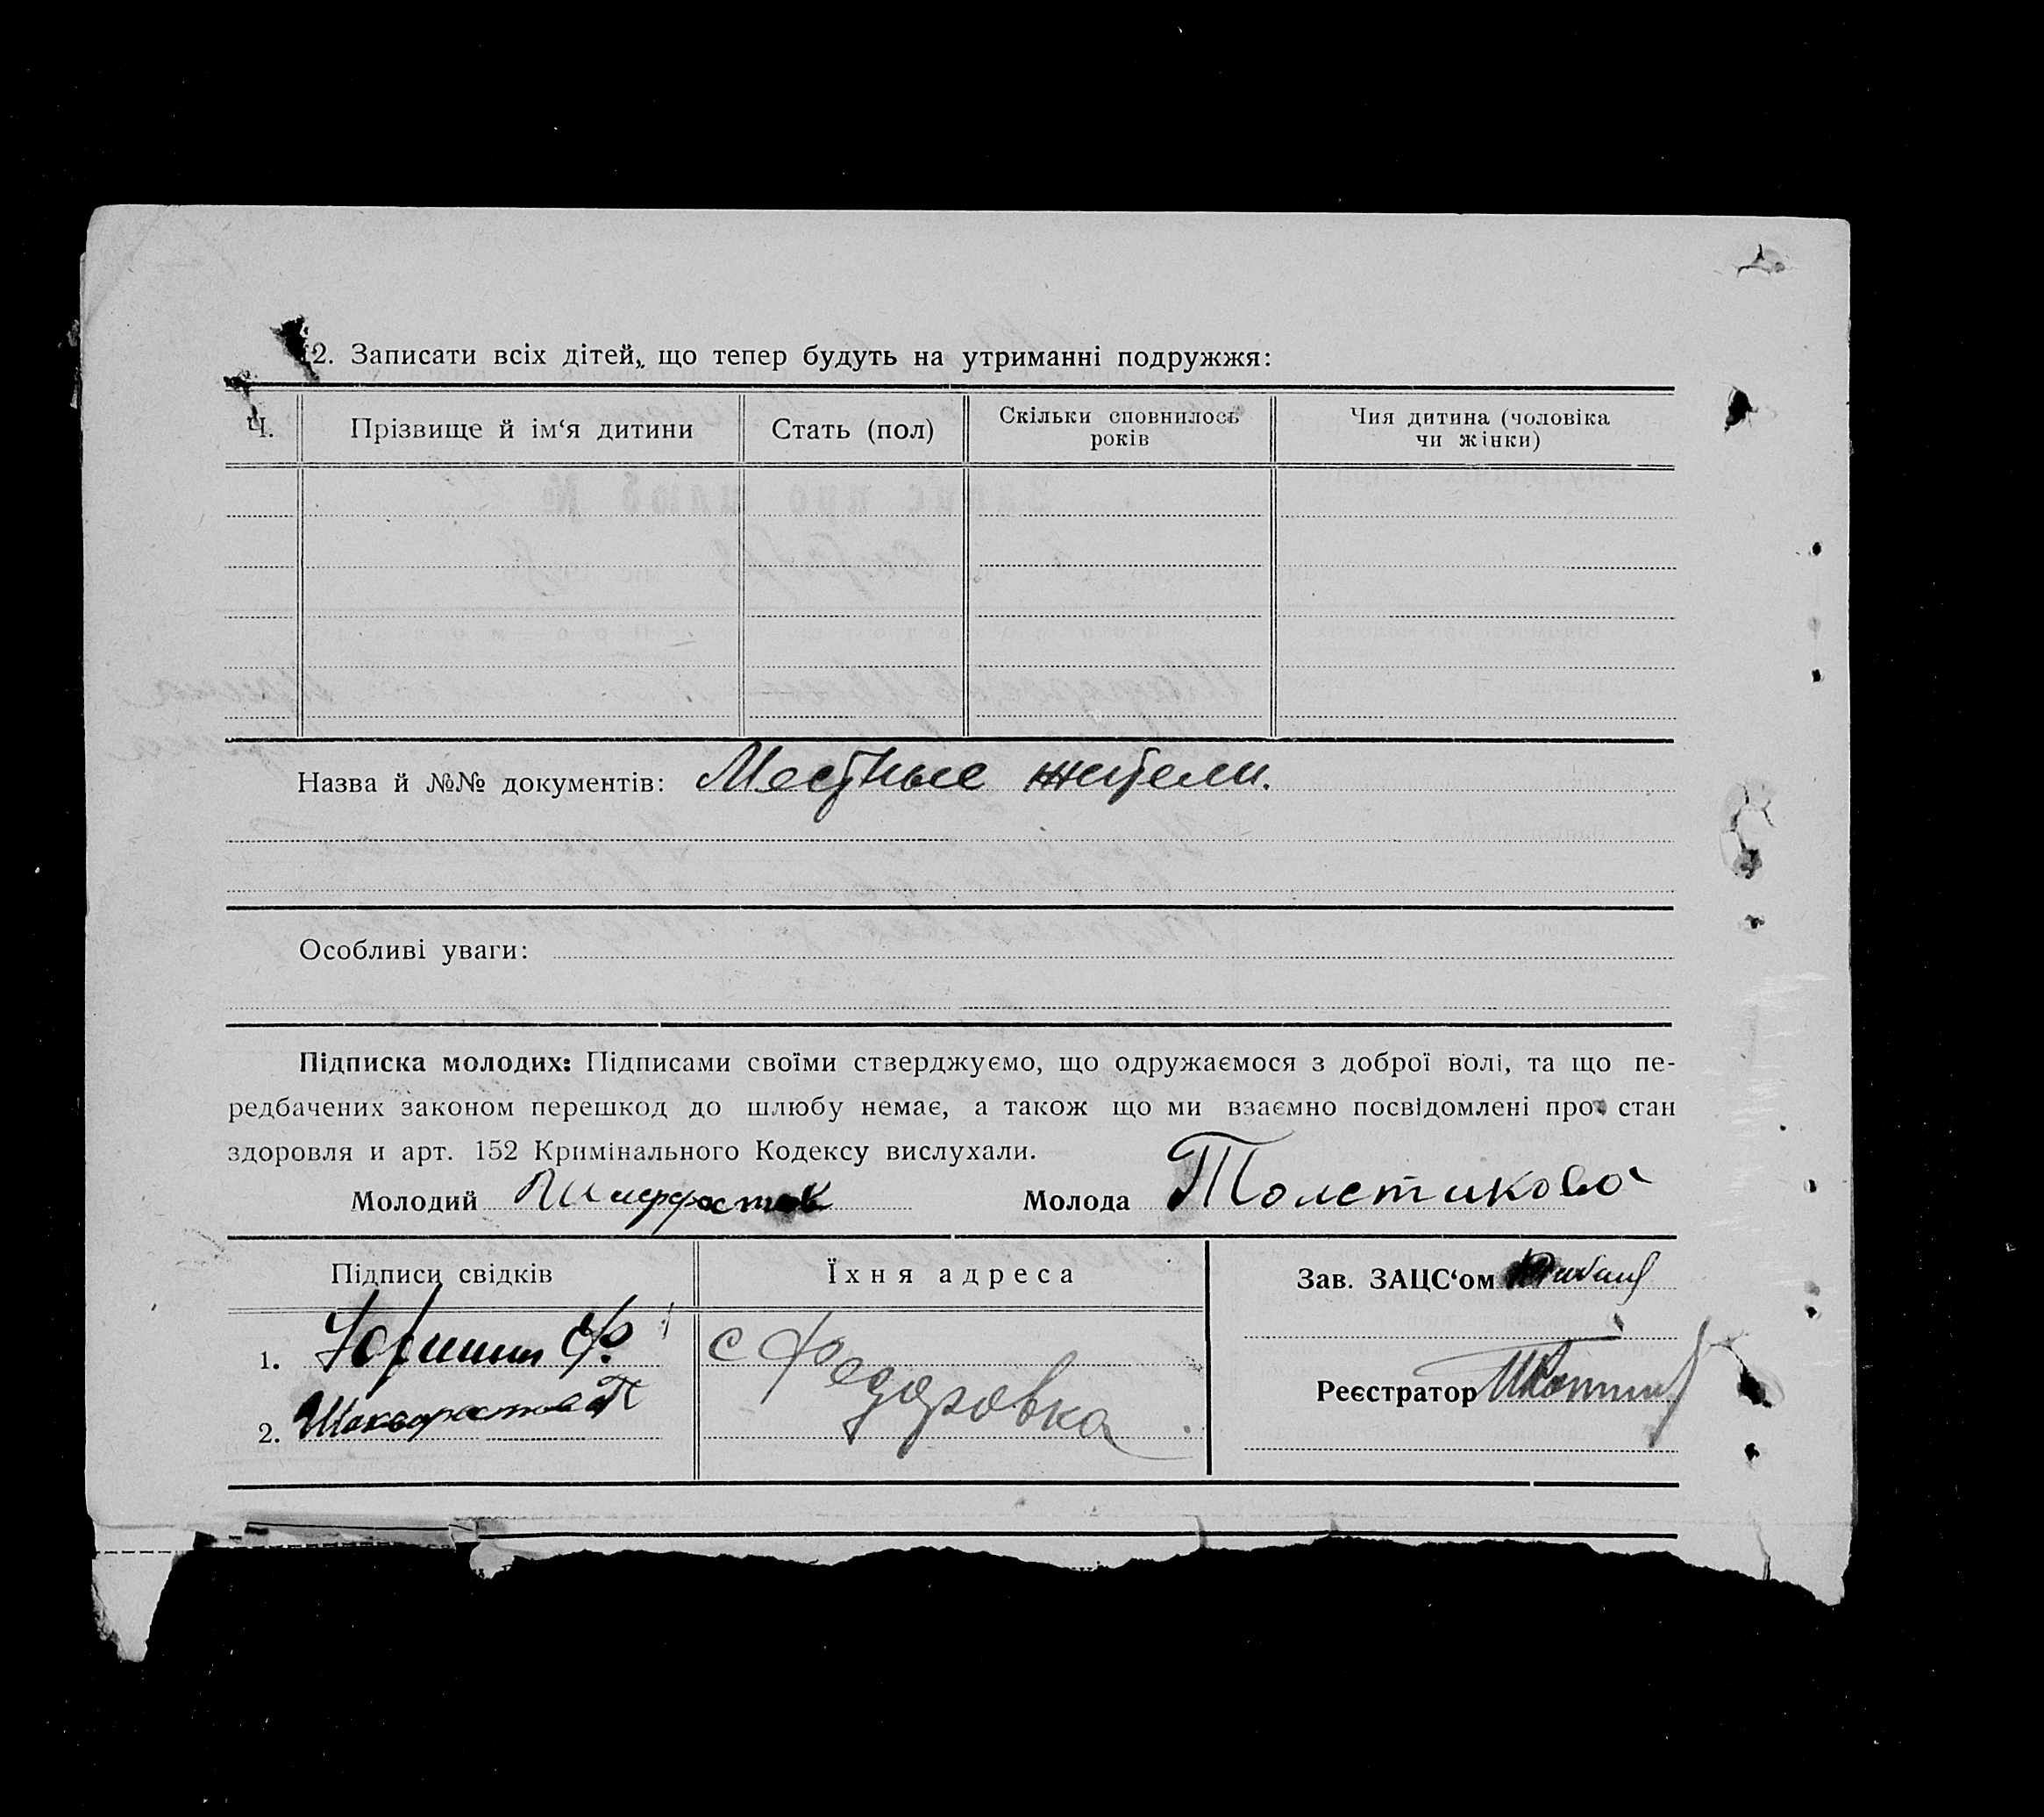 12. Записати всіх дітей, що тепер будуть на утриманні подружжя:
Ч. Прізвище й ім‘я дитини Стать (пол) Скільки сповнилось років Чия дитина (чоловіка чи жінки)
Назва й №№ документів: Местные жители.
Особливі уваги:
Підписка молодих: Підписами своїми стверджуємо, що одружаємося з доброї волі, та що пе-
редбачених законом перешкод до шлюбу немає, а також що ми взаємно посвідомлені про стан
здоровля и арт. 152 Кримінального Кодексу вислухали.
Молодий Молода Толстикова
Підписи свідків Їхня адреса Зав. ЗАЦС‘ом
1. с Федоровка
2. Реєстратор